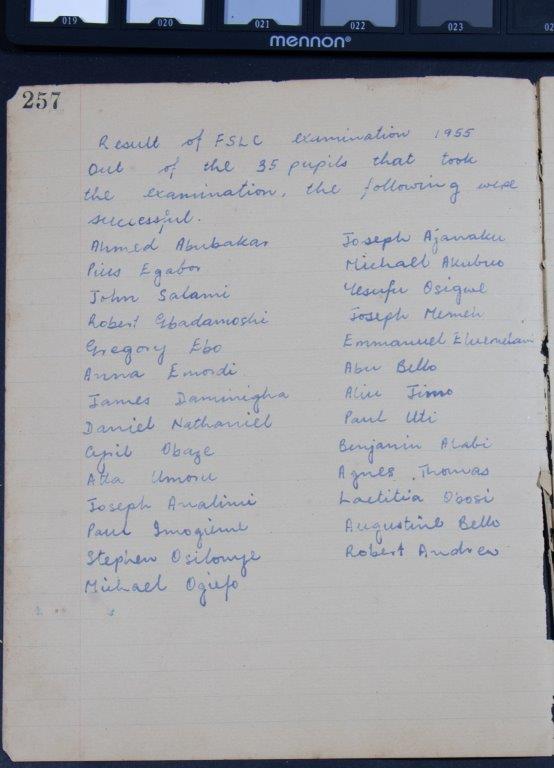 019 020 021 022 023
mennon®
257
Result of FSLC examination 1955
Out of the 35 pupils that took
the examination, the following were
successful.
Ahmed Abubakar
Pius Egabor
John Salami
Robert Gbadamoshi
Gregory Ebo
Anna Emordi
James Daminigha
Daniel Nathaniel
Cyril Obaze
Atta Umoru
Joseph Analimi
Paul Imogieme
Stephen Osilonye
Michael Ogiefo
Joseph Ajanaku
Michael Akubuo
Yesufu Osigwe
Joseph Memeh
Emmanuel
Abu Bello
Aliu Jimo
Paul Uti
Benjamin Alabi
Agnes Thomas
Laetitia Obosi
Augustine Bello
Robert Andrew